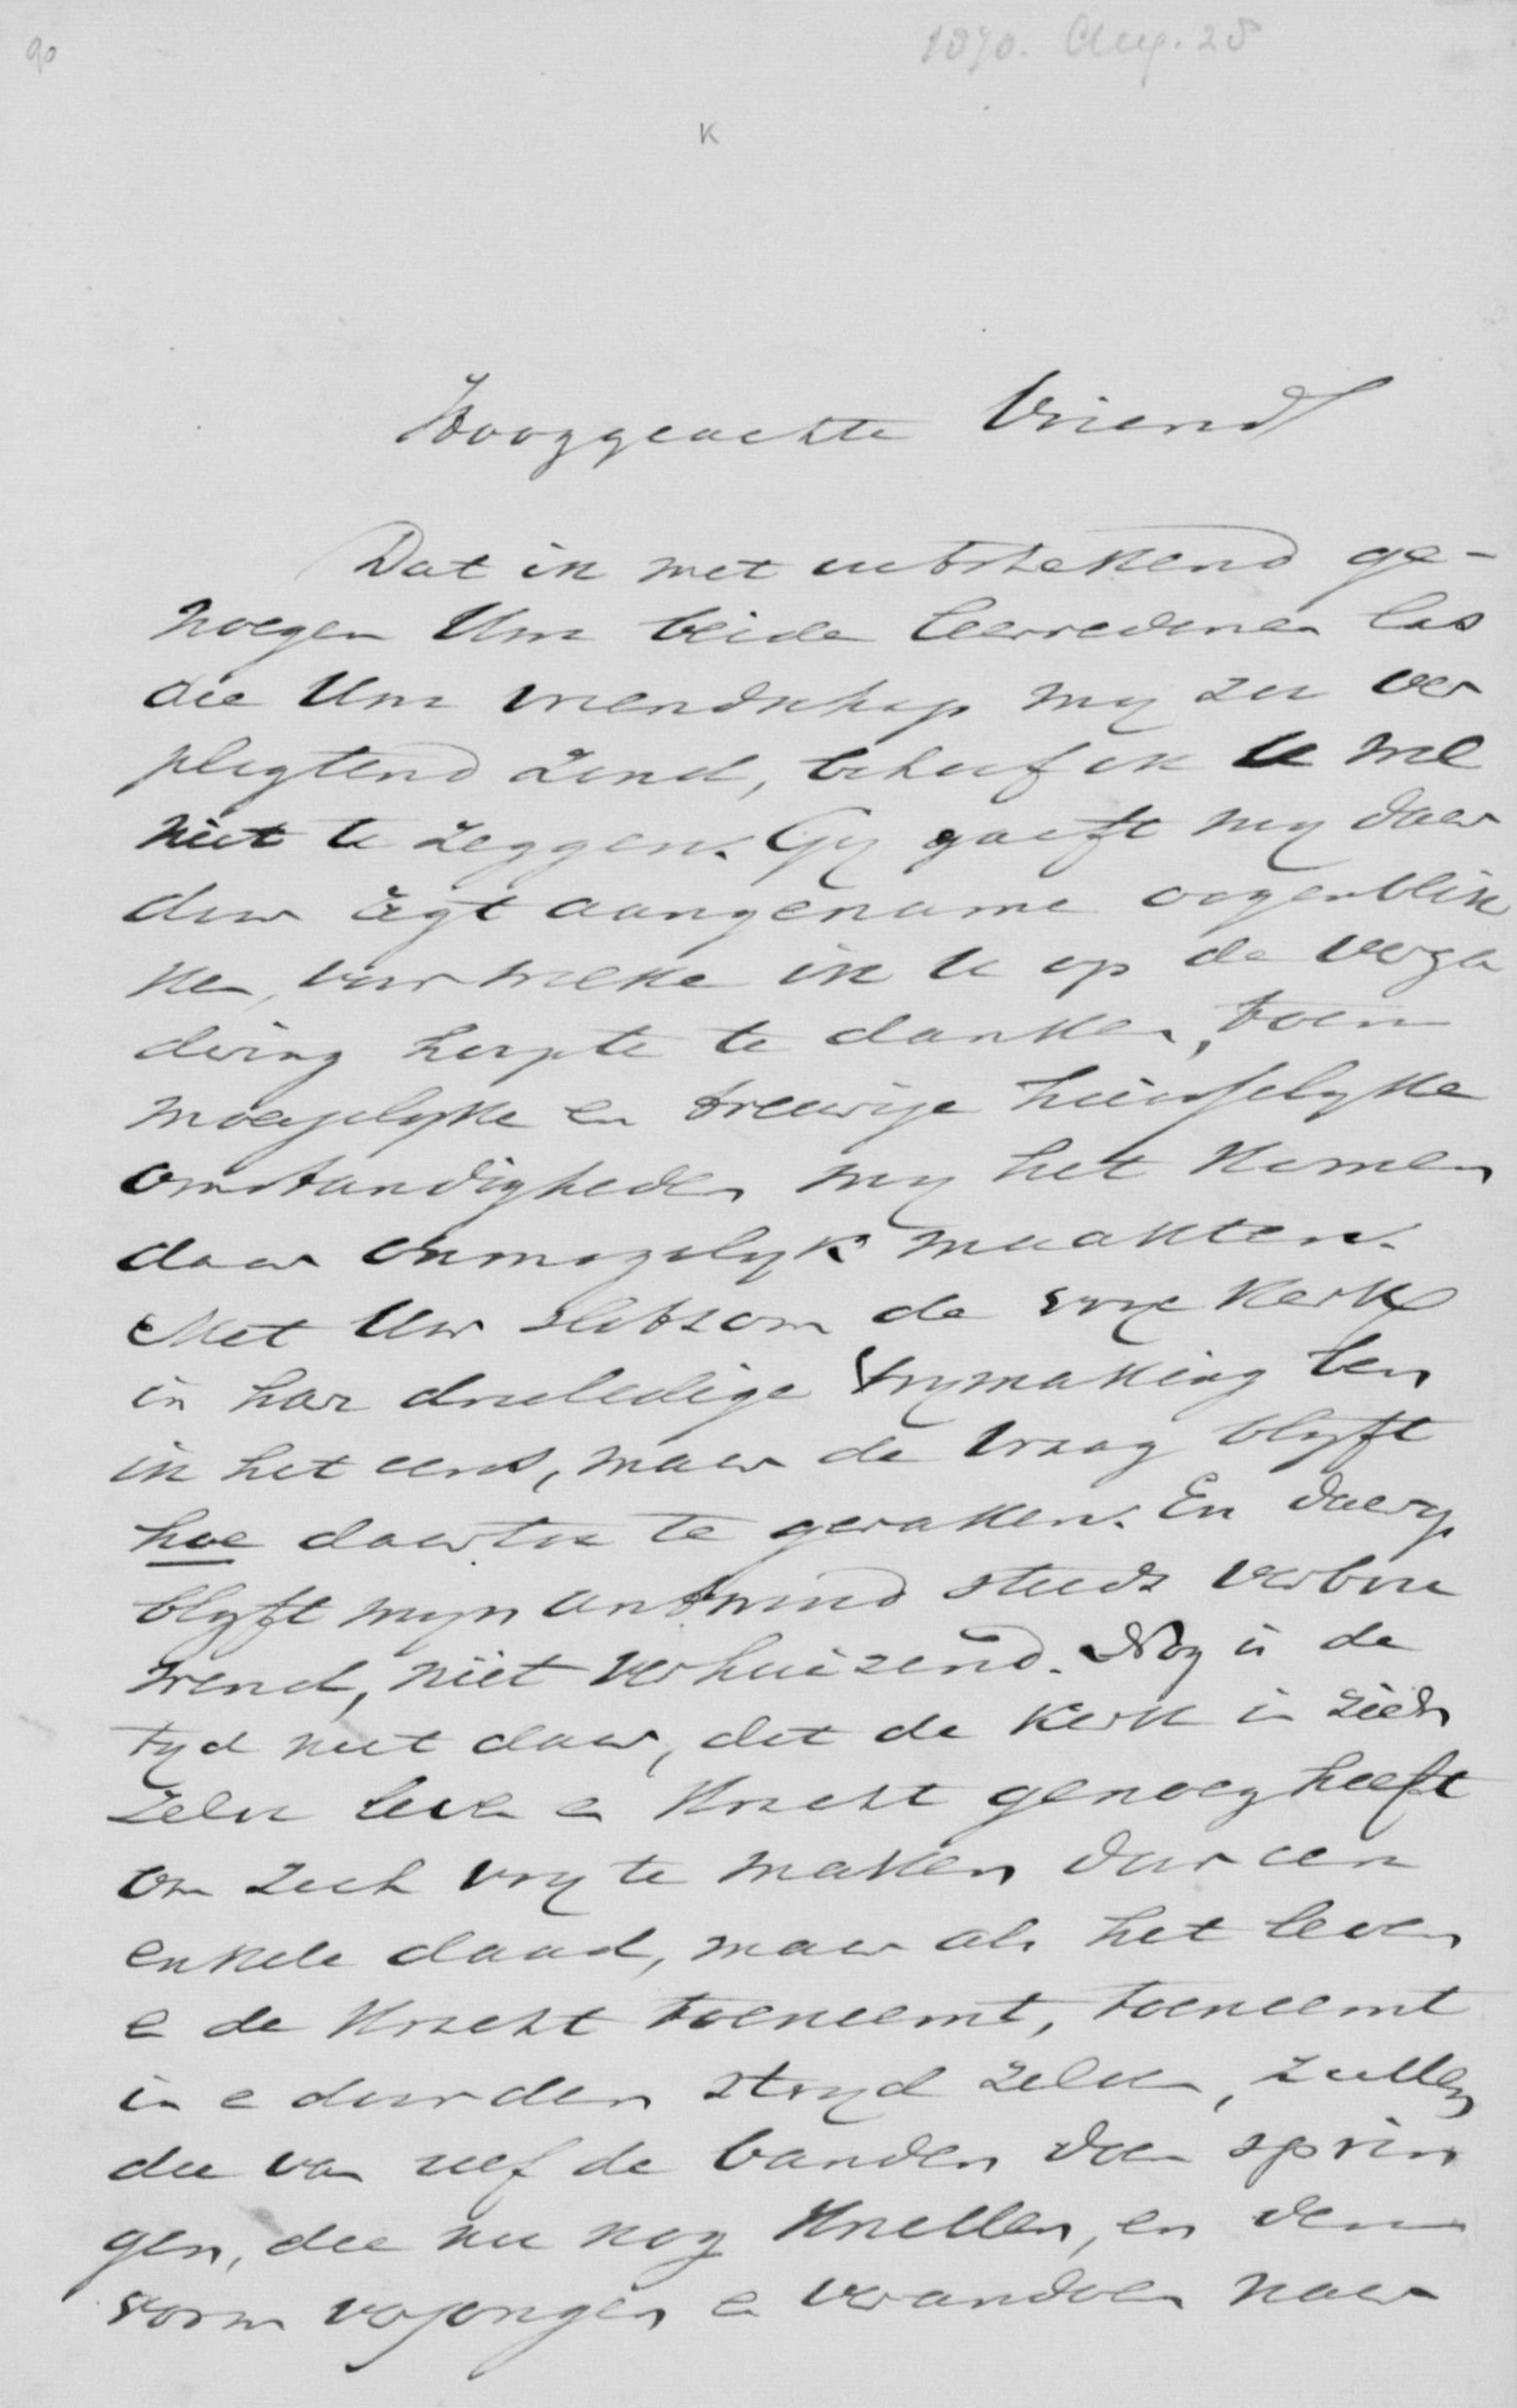 90
1870. Aug. 28
K
Hooggeachte Vriend
Dat ik met uitstekend ge-
noegen Uw beide leerredenen las
die Uw vriendschap my zoo ver
pligtend zond, behoef ik U wel
niet te zeggen. Gy gaaft my daar
door regt aangename oogenblik
ken, voor welke ik U op de verga
dering hoopte te danken, toen
moeyelyke en treurige huisselyke
omstandigheden my het komen
daar onmogelyk maakten.
Met Uw slotsom de vrye kerk
in haar drieledige vrymaking ben
ik het eens, maar de vraag blyft
hoe daartoe te geraken. En daarop
blyft myn antwoord steeds verbou
wend, niet verhuizend. Nog is de
tyd niet daar, dat de kerk in zich
zelve leven en kracht genoeg heeft
om zich vry te maken door een
enkele daad, maar als het leven
en de kracht toeneemt, toeneemt
in en door den stryd zelven, zullen
die van zelf de banden doen sprin
gen, die nu nog knellen, en den
vorm verjongen en veranderen naar